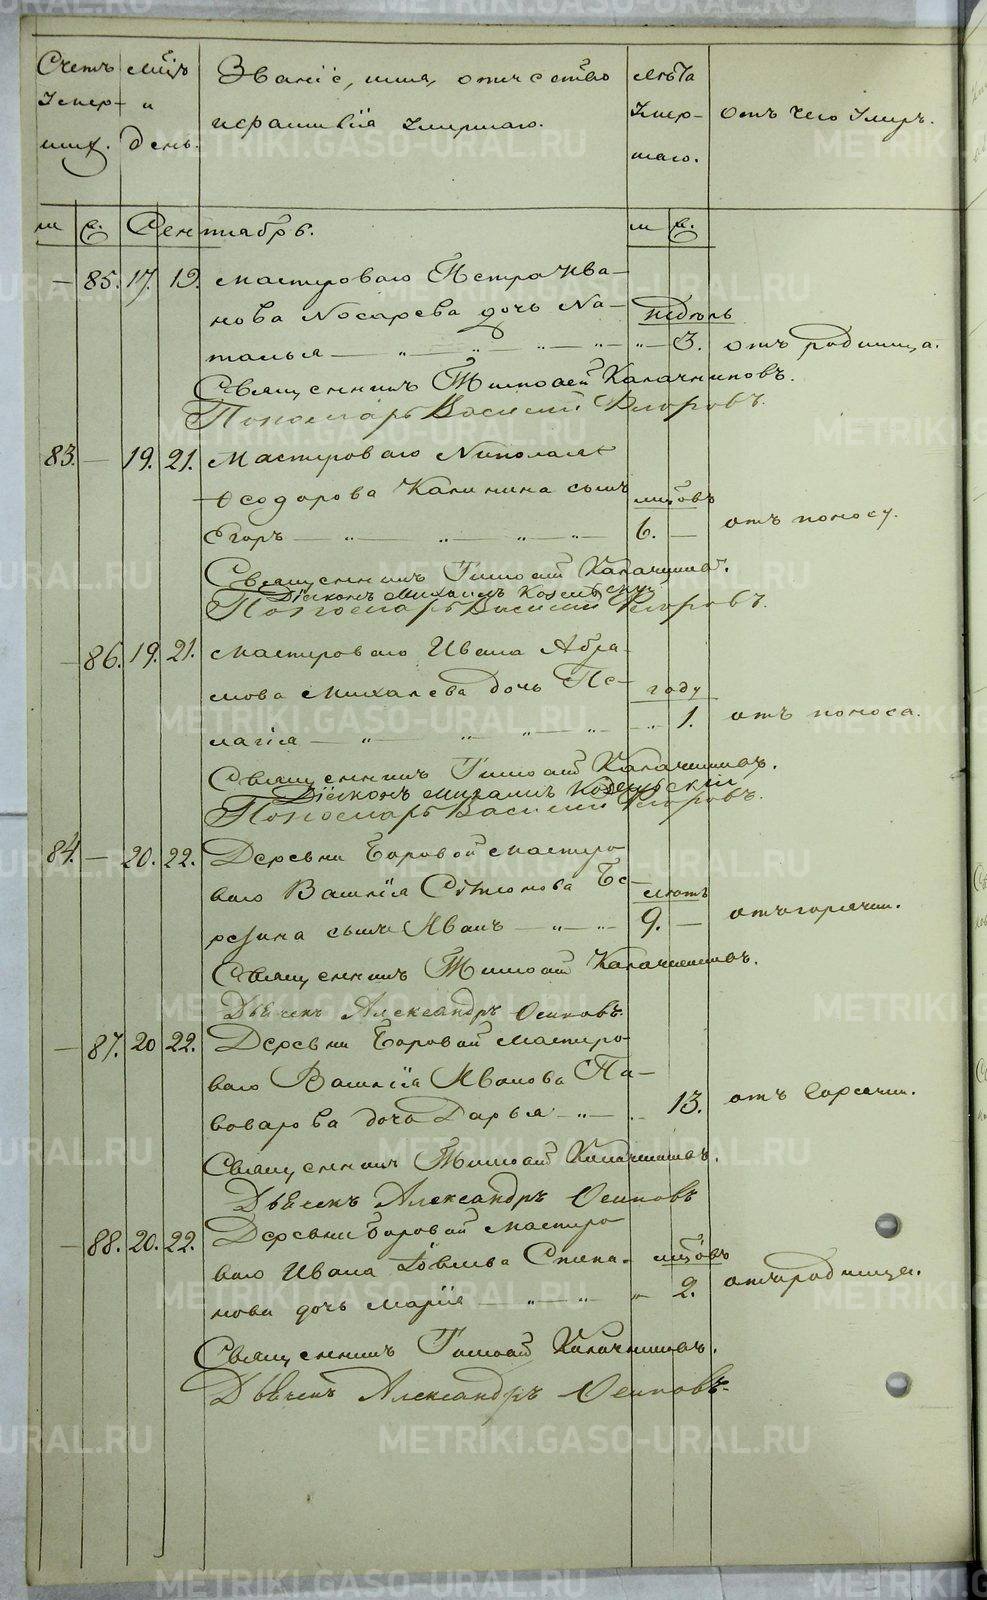 Счетъ мцъ Званіе, имя, отчество лѣта
Умер- и Умер- отъ чего Умеръ.
шихъ. день. и фамилія Умершаго. шаго.
м ж. Сентябрь. м ж.
— 85. 17. 19. Мастероваго Петра Ива-
нова Носарева дочь На- недѣль
талья — „ — „ — „ — „ „ — 3. отъ родимца.
Священникъ Тимофей Калачниковъ.
Пономарь Василій Егоровъ.
83. — 19. 21. Мастероваго Николая
Ѳеодорова Калинина сынъ мцовъ
Егоръ — „ — „ — „ — „ — 6. — отъ поносу.
Священникъ Тимофей Калачниковъ.
Діаконъ Михаилъ
Пономарь Василій Егоровъ.
— 86. 19. 21. Мастероваго Ивана Абра-
мова Михалева дочь Пе- году
лагія — „ — „ — „ — „ — „ 1. отъ поноса.
Священникъ Тимофей Калачниковъ.
Діаконъ Михаилъ
Пономарь Василій Егоровъ.
84. — 20. 22. Деревни Боровой мастеро
ваго Василія Сѵмонова Бе- лѣтъ
резина сынъ Иванъ — „ — „ 9. — отъ горячки.
Священникъ Тимофей Калачниковъ.
Дьячекъ Александръ Осиповъ.
— 87. 20 22. Деревни Боровой мастеро-
ваго Василія Иванова Па-
воварова дочь Дарья — „ — „ 13. отъ горячки.
Священникъ Тимофей Калачниковъ.
Дьячекъ Александръ Осиповъ
— 88. 20. 22. Деревни Боровой мастеро
ваго Ивана Спика- мцовъ
нова дочь Марія — „ — „ „ 2. отъ родимца.
Священникъ Тимофей Калачниковъ.
Дьячекъ Александръ Осиповъ.
METRIKI.GASO-URAL.RU